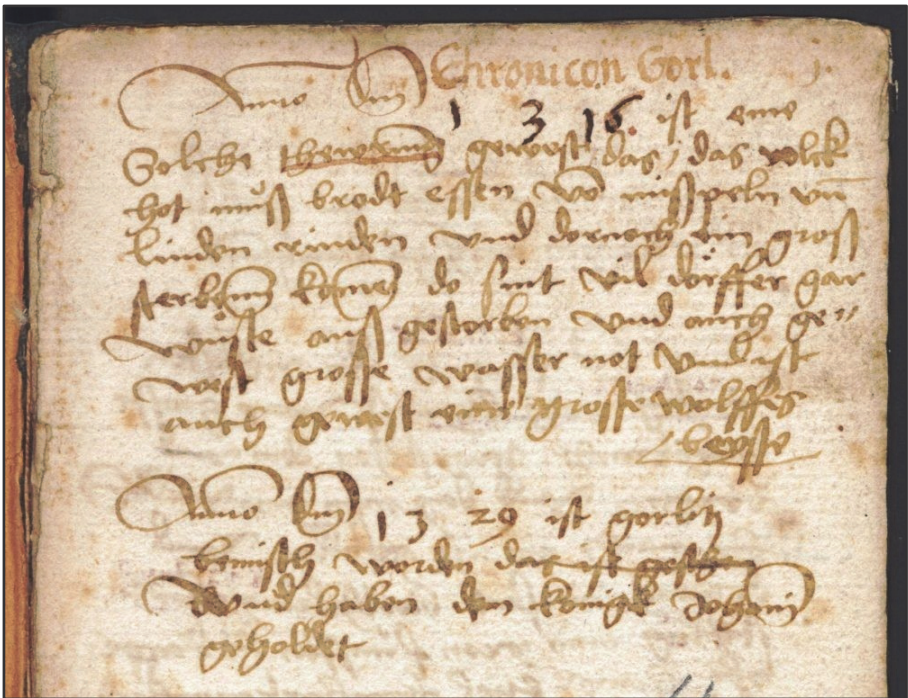 Chronicon Gorl.
Anno dm̄
1 3 16. ist eine
Solche thewrung gewest das / das volck
hot muß brodt essen vō mißpeln vn̄
linden rinden vnd dornoch ein groß
sterben komen do sint vil dörffer gar
wuste auß gestorben vnd auch ge=
west grosse wasser not vnd ist
auch gewest eine grosse wolffes
beysse
Anno dm̄ 13 29 ist gorlitz
bemisch worden das ist gescheen
Vnd haben den konigk Johann
geholdet